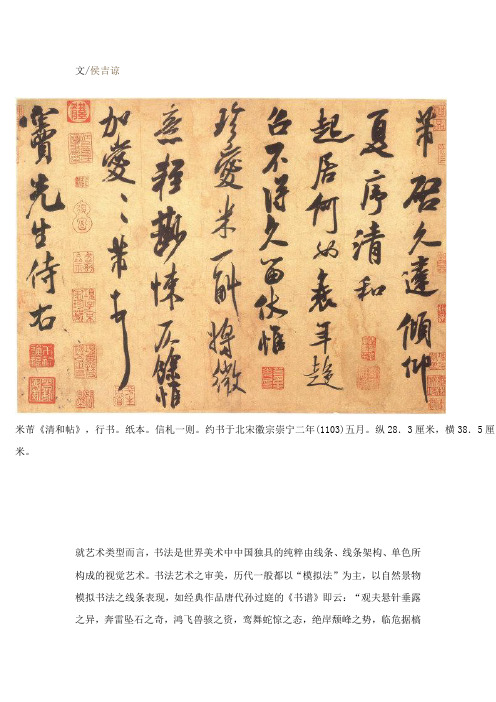 文/侯吉谅
芾啓久違傾仰
夏序清和
起居何如衰年趨
召不得久留伏惟
珍愛米一斛將微
意輕尠悚仄餘惟
加愛〻芾頓首
竇先生侍右
米芾《清和帖》，行书。纸本。信札一则。约书于北宋徽宗崇宁二年(1103)五月。纵28．3厘米，横38．5厘
米。
就艺术类型而言，书法是世界美术中中国独具的纯粹由线条、线条架构、单色所
构成的视觉艺术。书法艺术之审美，历代一般都以“模拟法”为主，以自然景物
模拟书法之线条表现，如经典作品唐代孙过庭的《书谱》即云：“观夫悬针垂露
之异，奔雷坠石之奇，鸿飞兽骇之资，鸾舞蛇惊之态，绝岸颓峰之势，临危据槁